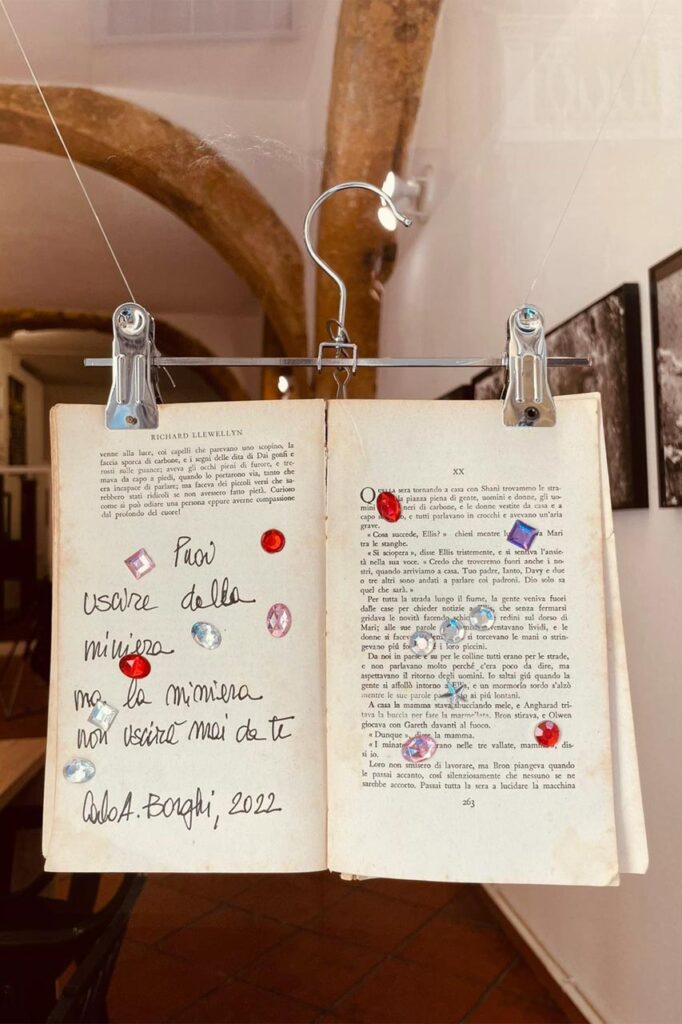 RICHARD LLEWELLYN
venne alla luce, coi capelli che parevano uno scopino, la
faccia sporca di carbone, e i segni delle dita di Dai gonfi e
rossi sulle guance; aveva gli occhi pieni di furore, e tre-
mava da capo a piedi, quando lo portarono via, tanto che
sera incapace di parlare; ma faceva dei piccoli versi che sa-
rebbero stati ridicoli se non avessero fatto pietà. Curioso
come si può odiare una persona eppure averne compassione
dal profondo del cuore!
Puoi
uscire dalla
miniera
ma la miniera
non uscirà mai da te
Carlo A. Borghi, 2022
XX
Quella sera tornando a casa con Shani trovammo le stra-
la piazza piena di gente, uomini e donne, gli uo-
mini neri di carbone, e le donne vestite da casa e a
capo, e tutti parlavano in crocchi e avevano un'aria
grave.
« Cosa succede, Ellis? » chiesi mentre Mari
tra le stanghe.
« Si sciopera », disse Ellis tristemente, e si sentiva l'ansie-
tà nella sua voce. « Credo che troveremo fuori anche i no-
stri, quando arriviamo a casa. Tuo padre, Ianto, Davy e due
o tre altri sono andati a parlare coi padroni. Dio solo sa
quel che sarà. »
Per tutta la strada lungo il fiume, la gente veniva fuori
dalle case per chieder notizie che senza fermarsi
gridava le novità facendo redini sul dorso di
Mari; alle sue parole diventavano lividi, e le
donne si si torcevano le mani o strin-
gevano più i loro piccini.
Da noi in e su per le colline tutti erano per le strade,
e non parlavano molto perché c'era poco da dire, ma
aspettavano il ritorno degli uomini. Io saltai giú quando la
gente si affollò intorno a Ellis, e un mormorío sordo s'alzò
mentre le sue parole ai piú lontani.
A casa la mamma stava bruciando mele, e Angharad tri-
tava la buccia per fare la marmellata. Bron stirava, e Olwen
giocava con Gareth davanti al fuoco.
« Dunque », la mamma.
« I nelle tre vallate, mamma », dis-
si io.
Loro non smisero di lavorare, ma Bron piangeva quando
le passai accanto, cosí silenziosamente che nessuno se ne
sarebbe accorto. Passai tutta la sera a lucidare la macchina
263